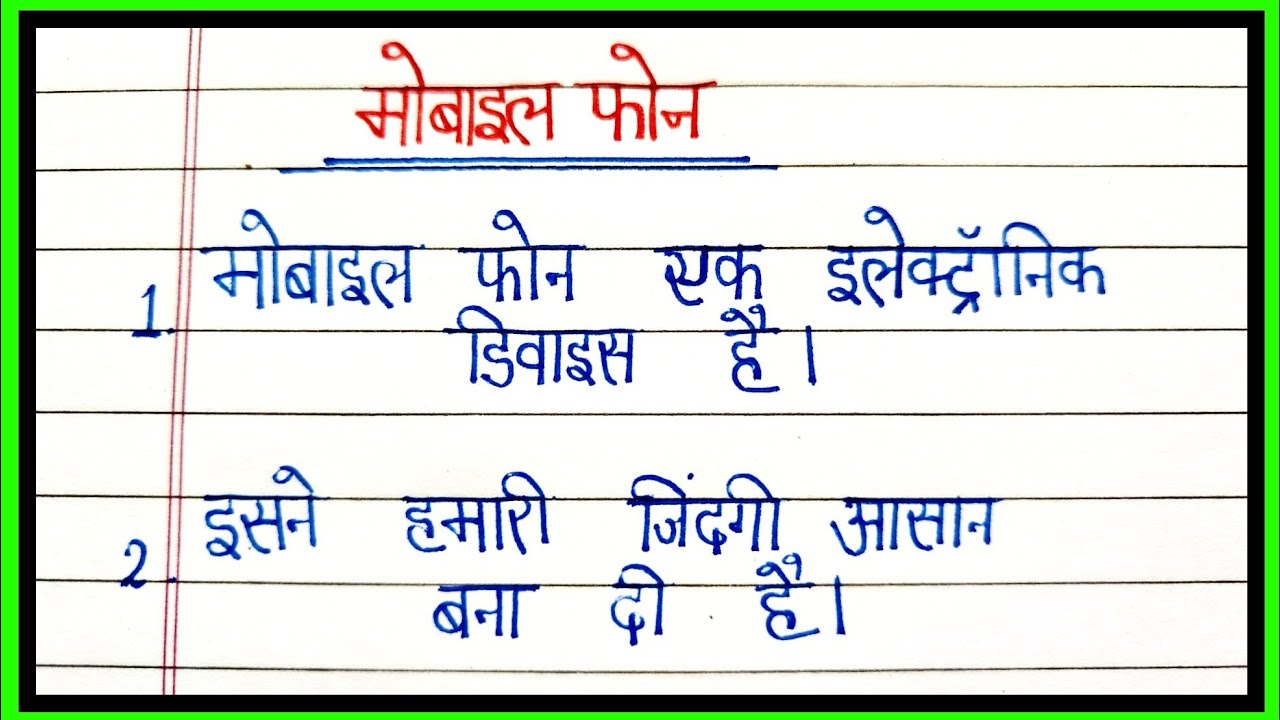 मोबाइल फोन
1. मोबाइल फोन एक इलेक्ट्रॉनिक
डिवाइस है।
2. इसने हमारी जिंदगी आसान
बना दी है।